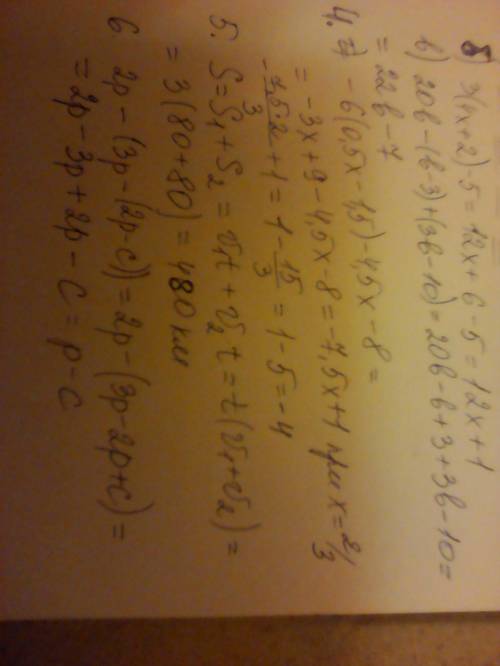 б) 3(4x+2)-5=12x+6-5=12x+1
в) 20в-(в-3)+(3в-10)=20в-в+3+3в-10=
=22в-7
4. -6(0,5x-1,5)-4,5x-8=
=-3x+9-4,5x-8=-7,5x+1 при x=2/3
-7,5·2/3+1=1-15/3=1-5=-4
5. S=S₁+S₂=v₁t+v₂t=t(v₁+v₂)=
=3(80+80)=480км
6. 2p-(3p-(2p-c))=2p-(3p-2p+c)=
=2p-3p+2p-c=p-c